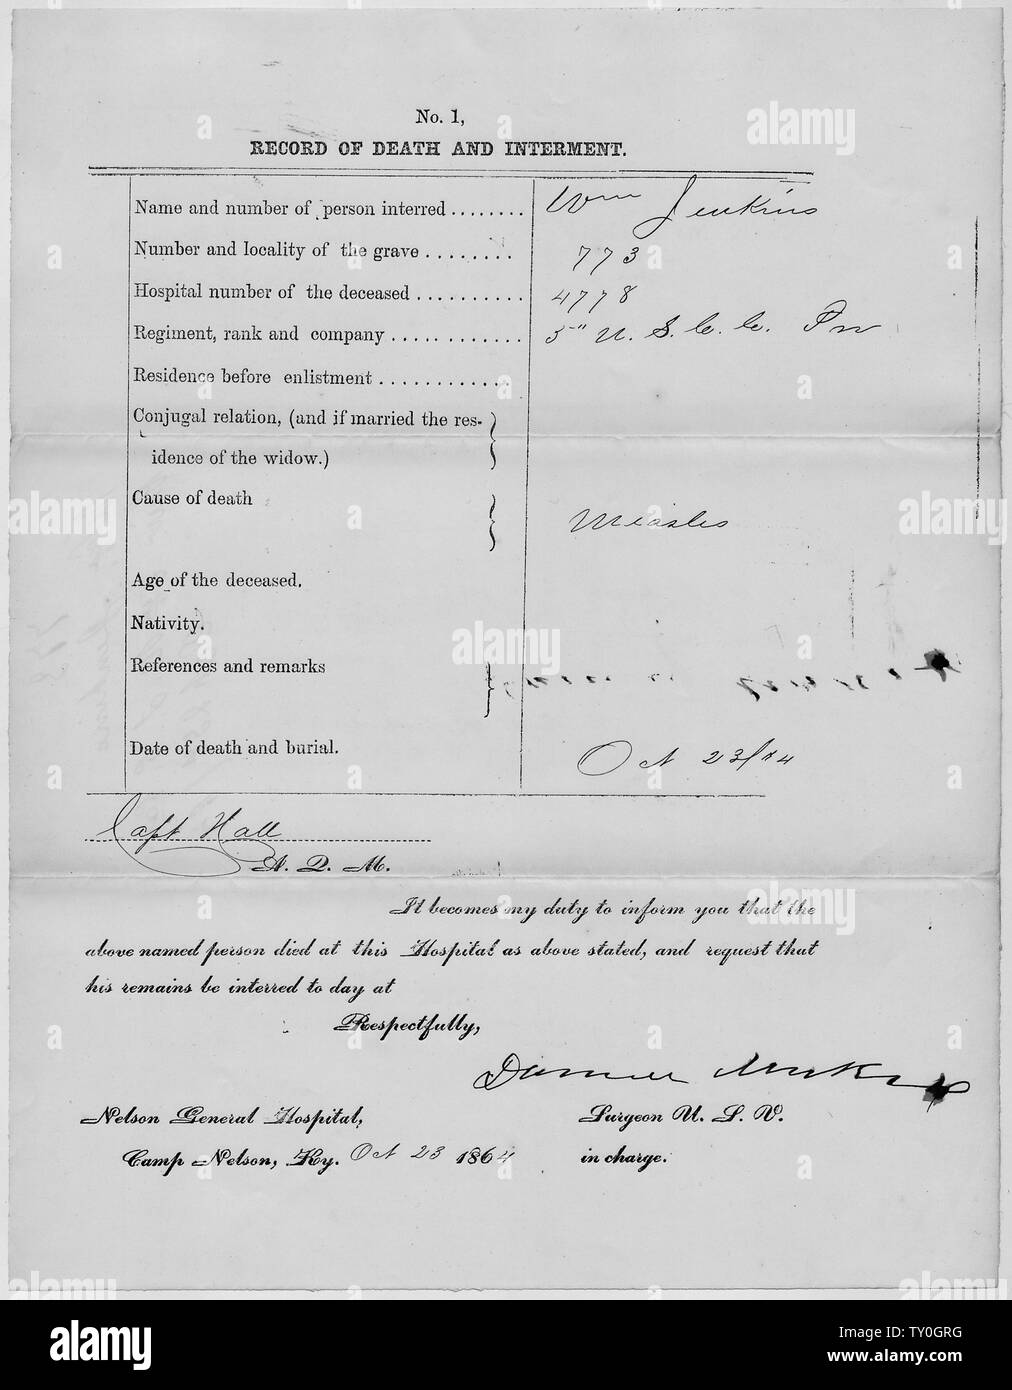 No. 1,
RECORD OF DEATH AND INTERMENT.
Name and number of person interred ........ Wm Jenkins
Number and locality of the grave ........ 773
Hospital number of the deceased .......... 4778
Regiment, rank and company ............ 5" U. S. C. C. Pri
Residence before enlistment ............
Conjugal relation, (and if married the res-
idence of the widow.)
Cause of death
Measles
Age of the deceased.
Nativity.
References and remarks
Date of death and burial. Oct 23/64
Capt Hall
A. Q. M.
It becomes my duty to inform you that the
above named person died at this Hospital as above stated, and request that
his remains be interred to day at
Respectfully,
Nelson General Hospital, Surgeon U. S. V.
Camp Nelson, Ky. Oct 23 1864 in charge.
alamy
alamy
Image ID: TY0GRG
www.alamy.com